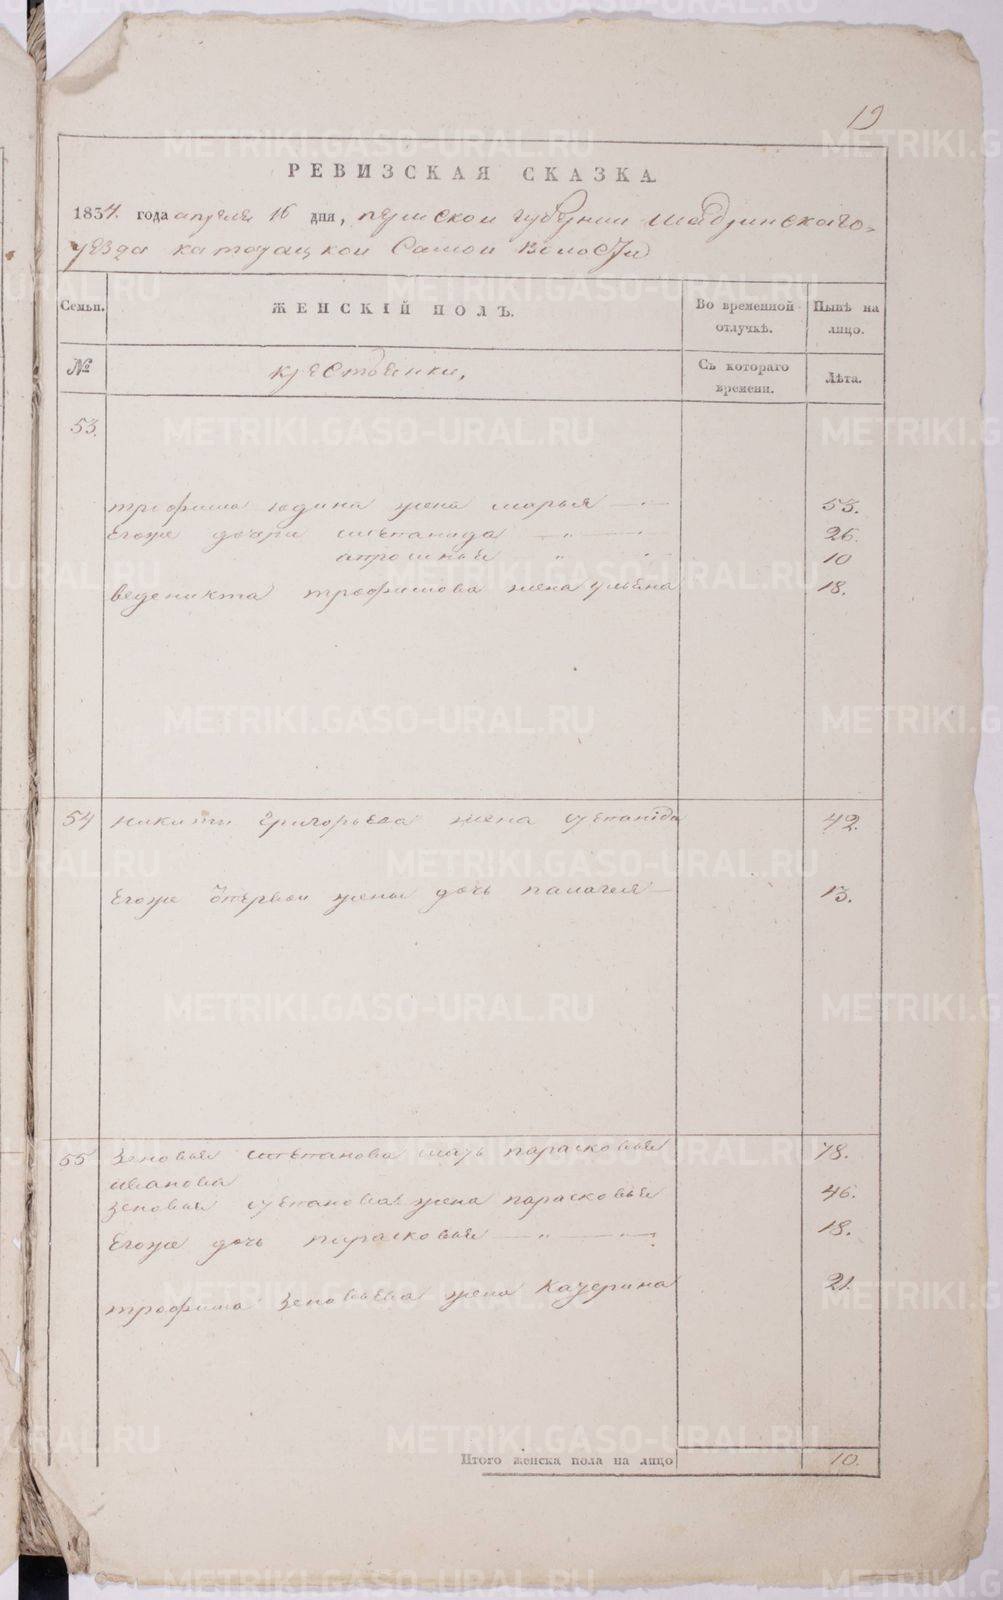 19
РЕВИЗСКАЯ СКАЗКА
1834. года апреля 16 дня, пермской губернии шадринскаго
уезда катайской Самой волости
Семьи.
ЖЕНСКІЙ ПОЛЪ.
Во временной отлучкѣ.
Нынѣ на лицо.
№
крестьянки,
Съ котораго времени.
Лѣта.
53.
трофима юдина жена марья 53.
Егоже дочри степанида 26.
10
веденикта трофимова жена ульяна 18.
54 никиты Григорьева жена степанида 42.
Егоже отпервой жены дочь палагея 13.
55 зеновья степанова мать парасковья 78.
иванова
зеновья степанова жена парасковья 46.
Егоже дочь парасковья 18.
трофима зеновьева жена Катерина 21.
Итого женска пола на лицо 10.
METRIKI.GASO-URAL.RU